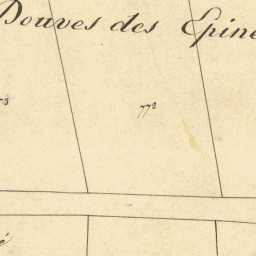 Douves des Epine
772